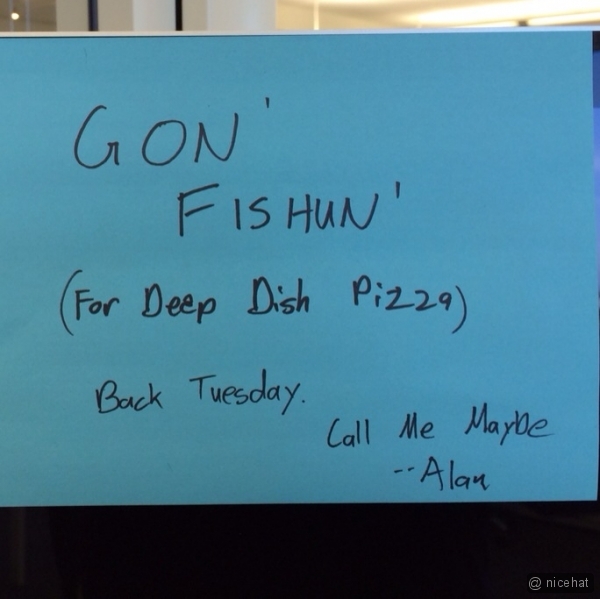 GON'
FISHUN'
(For Deep Dish Pizza)
Back Tuesday.
Call Me Maybe
--Alan
@ nicehat